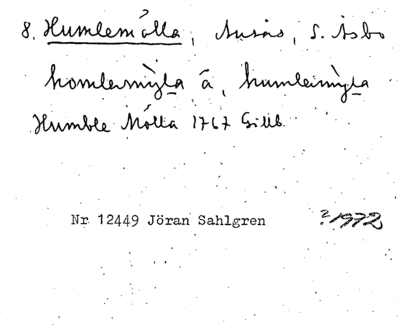 8. Humlemölla, Ausås, S. Åsbo
komlemỳla å, humlemỳla
Humble Mölla 1767 Gillb.
Nr 12449 Jöran Sahlgren ?1972